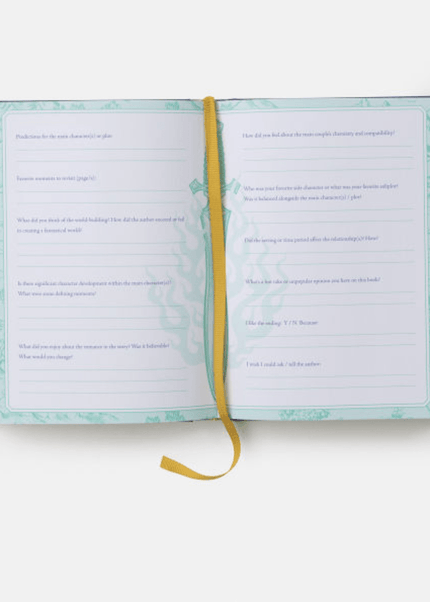 Predictions for the main character(s) or plot:
Favorite moments to revisit (page #):
What did you think of the world-building? How did the author succeed or fail
in creating a fantastical world?
Is there significant character development within the main character(s)?
What were some defining moments?
What did you enjoy about the romance in the story? Was it believable?
What would you change?
How did you feel about the main couple's chemistry and compatibility?
Who was your favorite side character or what was your favorite subplot?
Was it balanced alongside the main character(s) / plot?
Did the setting or time period affect the relationship(s)? How?
What's a hot take or unpopular opinion you have on this book?
I like the ending: Y / N Because:
I wish I could ask / tell the author: